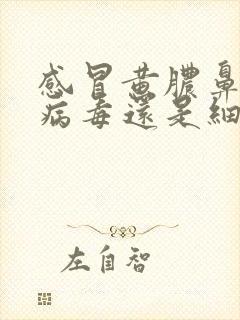 感冒黄膿鼻
病毒還是細
左自智